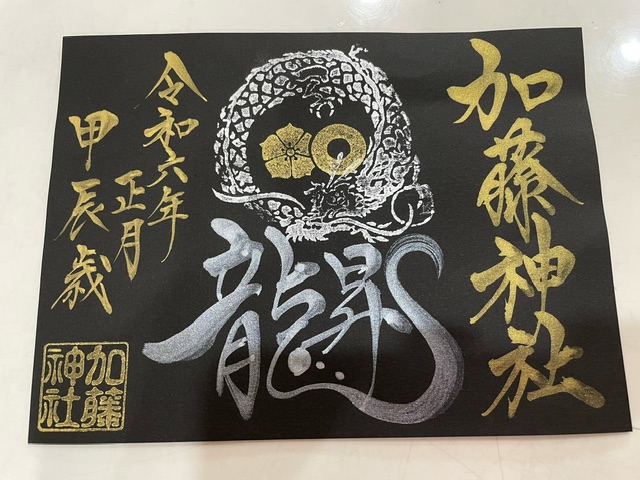 加藤神社
昇龍
令和六年
正月
甲辰歳
加藤
神社